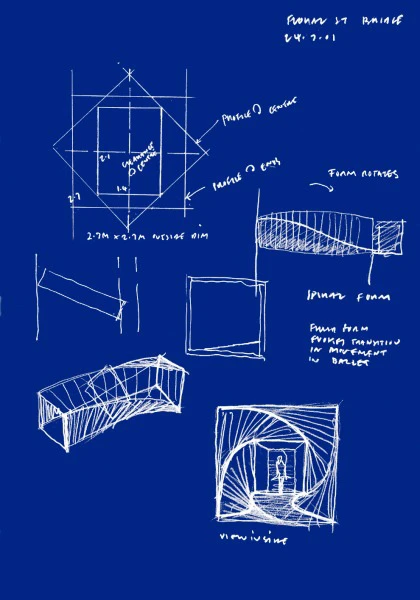 FLORAL ST BRIDGE
24.7.01
PROFILE @ CENTRE
2.1
CLEARANCE
@ CENTRE
1.6
PROFILE @ ENDS
2.7
2.7M x 2.7M OUTSIDE DIM
FORM ROTATES
SPIRAL FORM
FLUID FORM
EVOKES TRANSITION
IN MOVEMENT
IN BALLET
VIEW INSIDE